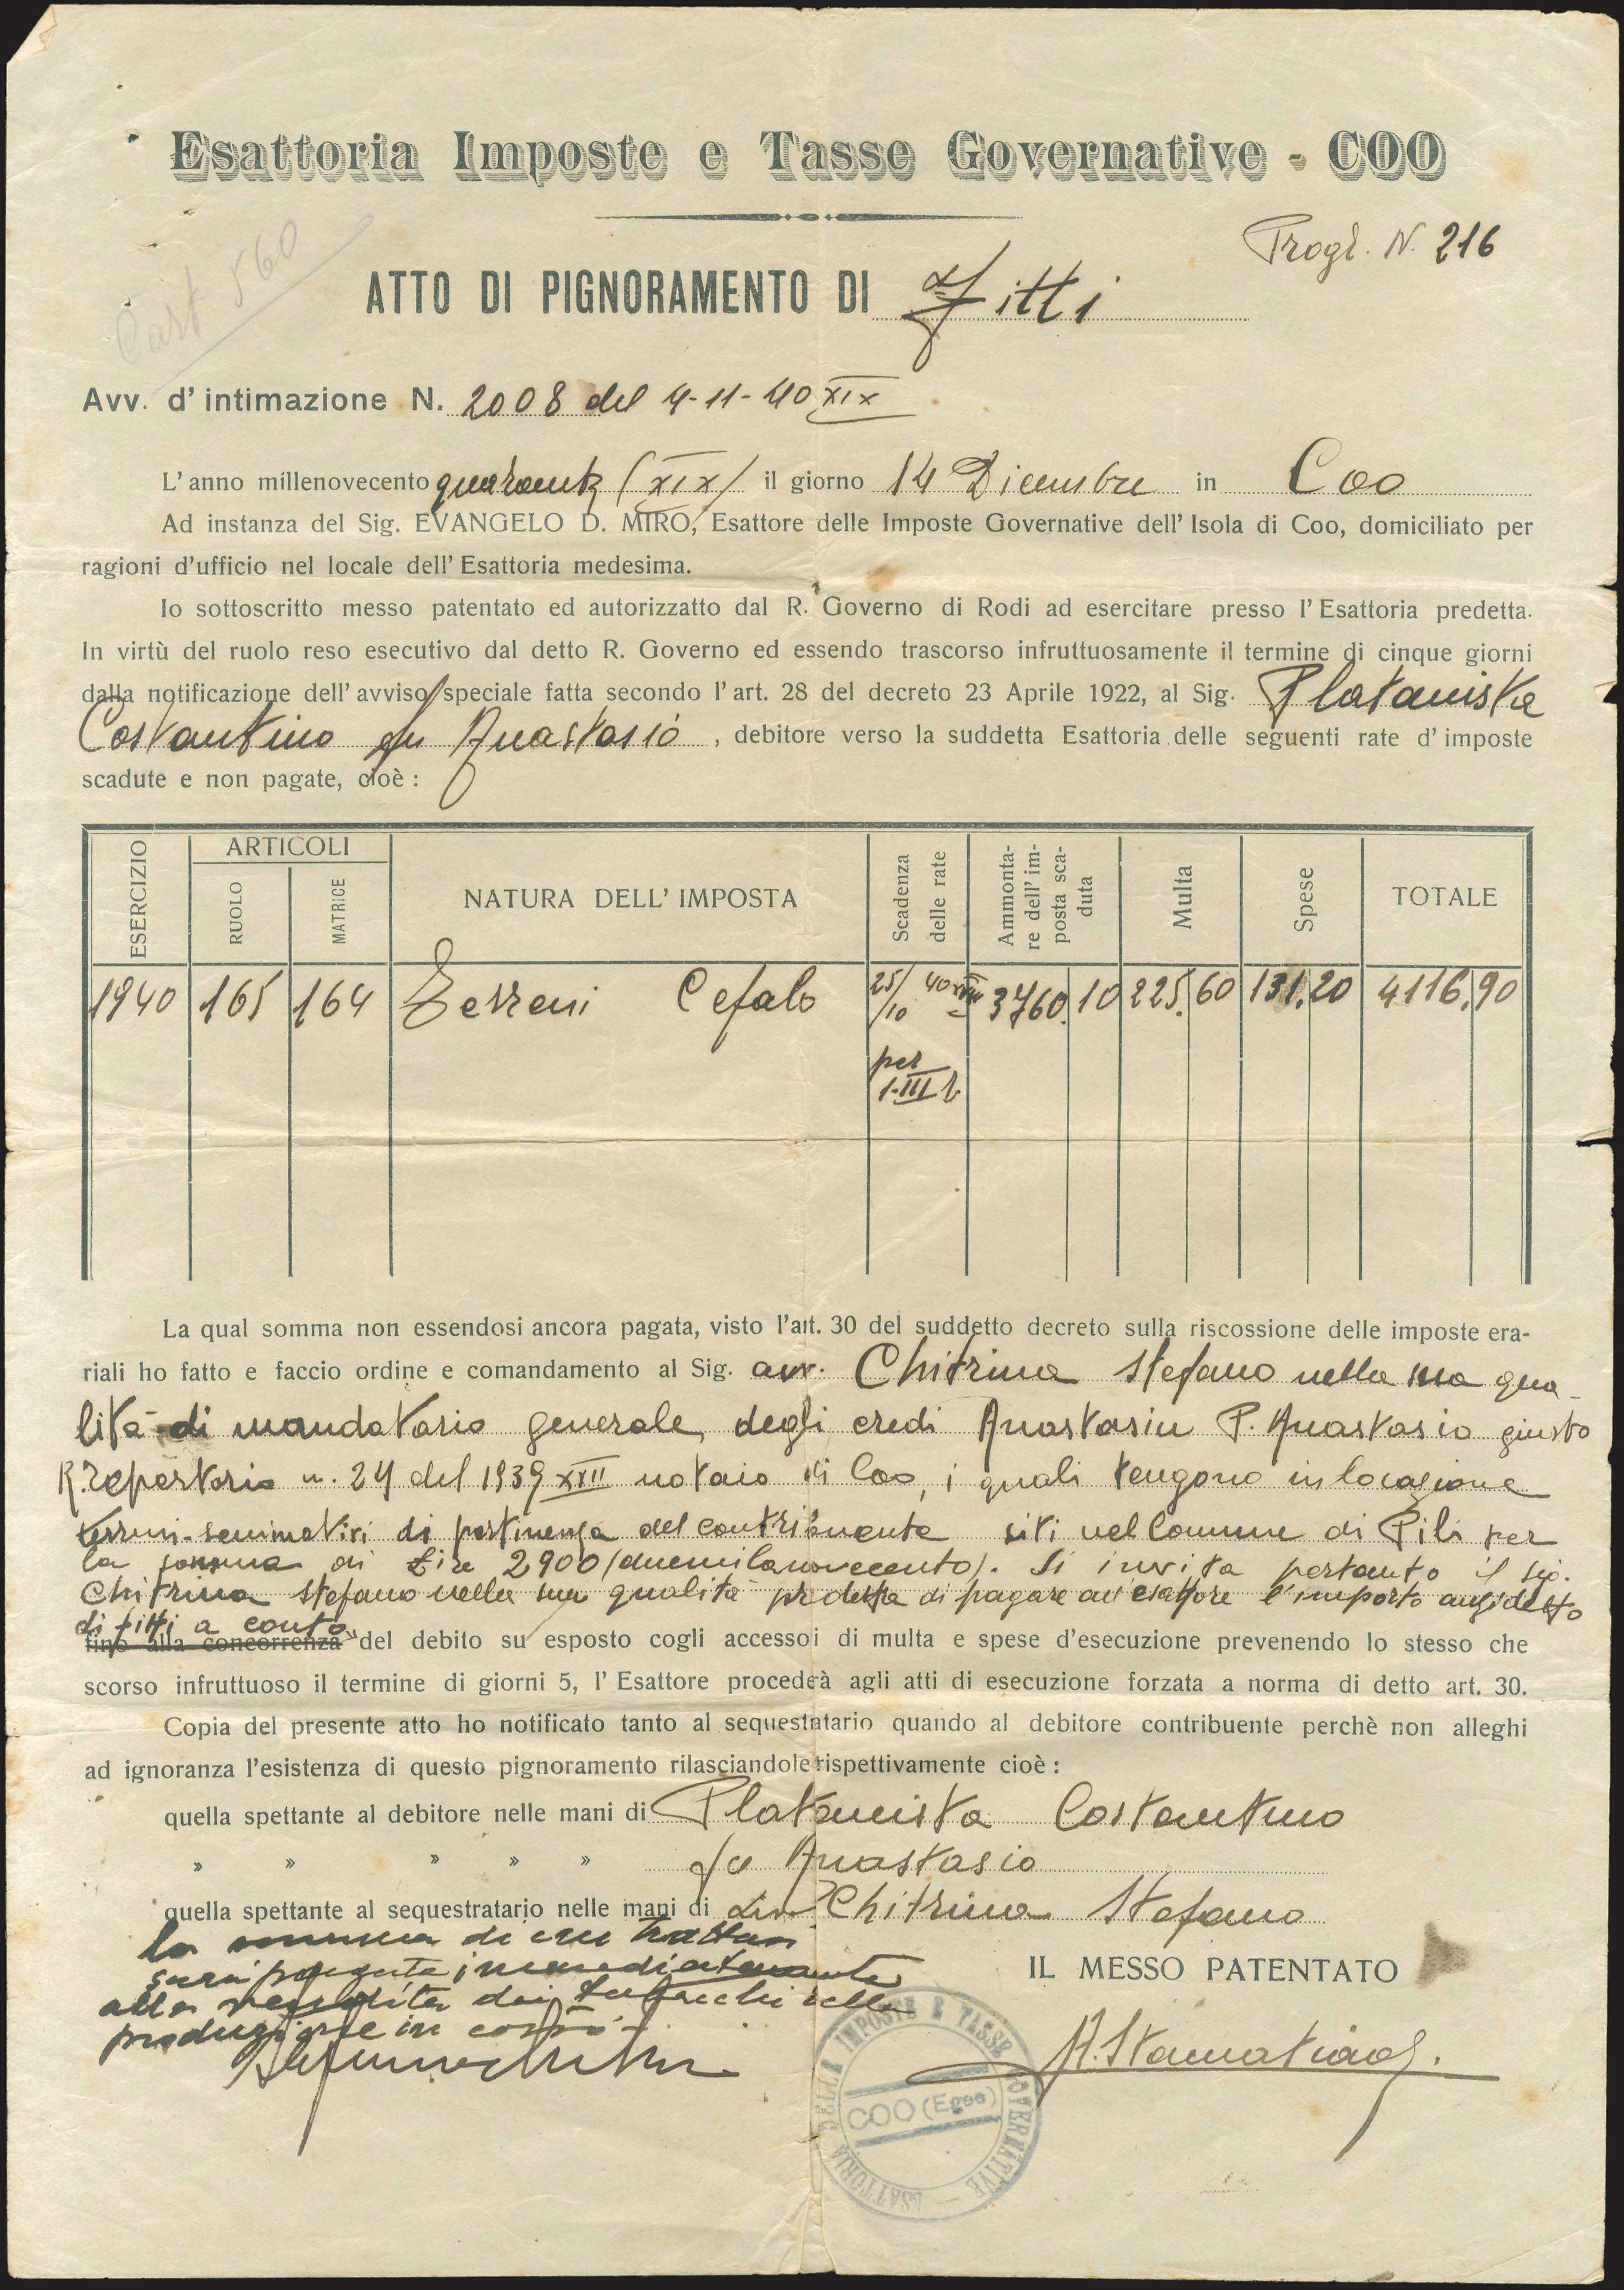 Esattoria Imposte e Tasse Governative - COO
Progr. N. 216
Cart 560
ATTO DI PIGNORAMENTO DI Fitti
Avv. d' intimazione N. 2008 del 4-11-40 XIX
L' anno millenovecento quaranta (XIX) il giorno 14 Dicembre in Coo
Ad instanza del Sig. EVANGELO D. MIRO, Esattore delle Imposte Governative dell' Isola di Coo, domiciliato per
ragioni d'ufficio nel locale dell' Esattoria medesima.
Io sottoscritto messo patentato ed autorizzatto dal R. Governo di Rodi ad esercitare presso l' Esattoria predetta.
In virtù del ruolo reso esecutivo dal detto R. Governo ed essendo trascorso infruttuosamente il termine di cinque giorni
dalla notificazione dell' avviso speciale fatta secondo l' art. 28 del decreto 23 Aprile 1922, al Sig. Platanista
Costantino fu Anastasio , debitore verso la suddetta Esattoria delle seguenti rate d' imposte
scadute e non pagate, cioè :
ESERCIZIO
ARTICOLI
RUOLO
MATRICE
NATURA DELL' IMPOSTA
Scadenza
delle rate
Ammonta-
re dell' im-
posta sca-
duta
Multa
Spese
TOTALE
1940 165 164 Terreni Cefalo 25/10 40 XVIII 3760.10 225.60 131.20 4116.90
per
I-III
La qual somma non essendosi ancora pagata, visto l'art. 30 del suddetto decreto sulla riscossione delle imposte era-
riali ho fatto e faccio ordine e comandamento al Sig. avv. Chitrina Stefano nella sua qua-
lità di mandatario generale degli eredi Anastasiu P. Anastasio giusto
R. repertorio n. 24 del 1939 XVII notaio di Coo, i quali tengono in locazione
terreni seminativi di pertinenza del contribuente siti nel Comune di Pili per
la somma di Lire 2900 (duemilanovecento). Si invita pertanto il sig.
Chitrina Stefano nella sua qualità predetta di pagare all'esattore l'importo anzidetto
di fitti a conto
fino alla concorrenza del debito su esposto cogli accessoi di multa e spese d'esecuzione prevenendo lo stesso che
scorso infruttuoso il termine di giorni 5, l' Esattore procederà agli atti di esecuzione forzata a norma di detto art. 30.
Copia del presente atto ho notificato tanto al sequestatario quando al debitore contribuente perchè non alleghi
ad ignoranza l'esistenza di questo pignoramento rilasciandole rispettivamente cioè :
quella spettante al debitore nelle mani di Platanista Costantino
» » » » » fu Anastasio
quella spettante al sequestratario nelle mani di Chitrina Stefano
la somma di cui trattasi
sarà pagata immediatamente
alla vendita dei tabacchi della
produzione in corso
IL MESSO PATENTATO
ESATTORIA DELLE IMPOSTE E TASSE GOVERNATIVE
COO (Egeo)